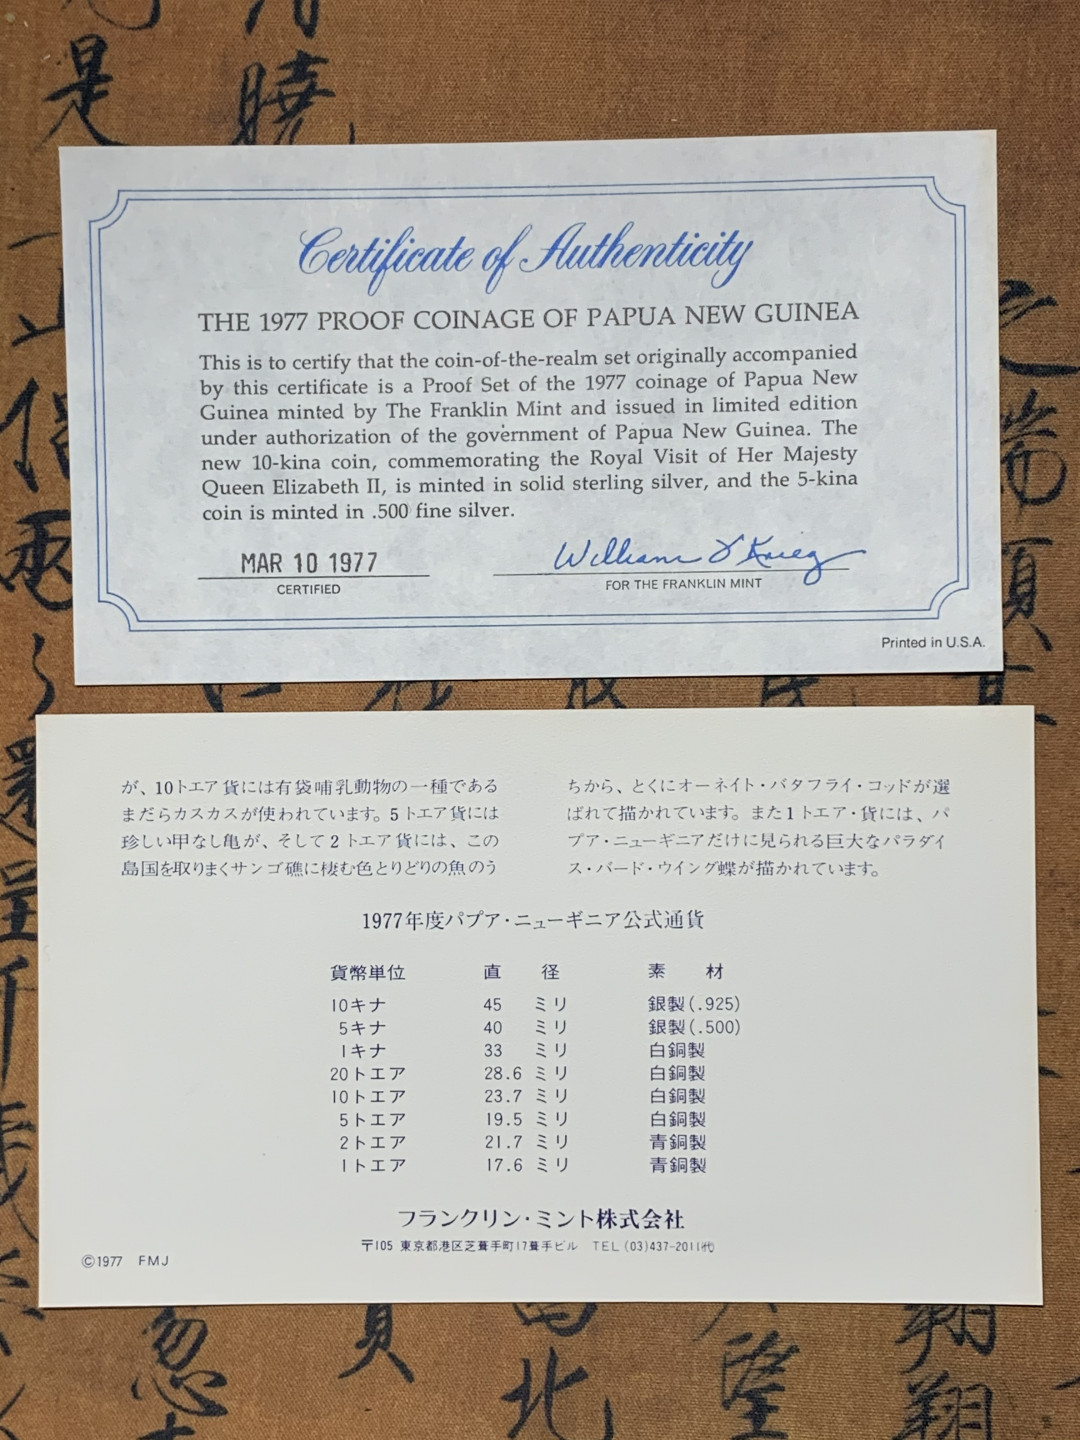 Certificate of Authenticity
THE 1977 PROOF COINAGE OF PAPUA NEW GUINEA
This is to certify that the coin-of-the-realm set originally accompanied
by this certificate is a Proof Set of the 1977 coinage of Papua New
Guinea minted by The Franklin Mint and issued in limited edition
under authorization of the government of Papua New Guinea. The
new 10-kina coin, commemorating the Royal Visit of Her Majesty
Queen Elizabeth II, is minted in solid sterling silver, and the 5-kina
coin is minted in .500 fine silver.
MAR 10 1977
CERTIFIED
William J Krieg
FOR THE FRANKLIN MINT
Printed in U.S.A.
が、10トエア貨には有袋哺乳動物の一種である
まだらカスカスが使われています。5トエア貨には
珍しい甲なし亀が、そして2トエア貨には、この
島国を取りまくサンゴ礁に棲む色とりどりの魚のう
ちから、とくにオーネイト・バタフライ・コッドが選
ばれて描かれています。また1トエア・貨には、パ
プア・ニューギニアだけに見られる巨大なパラダイ
ス・バード・ウイング蝶が描かれています。
1977年度パプア・ニューギニア公式通貨
貨幣単位 直 径 素 材
10キナ 45 ミリ 銀製(.925)
5キナ 40 ミリ 銀製(.500)
1キナ 33 ミリ 白銅製
20トエア 28.6 ミリ 白銅製
10トエア 23.7 ミリ 白銅製
5トエア 19.5 ミリ 白銅製
2トエア 21.7 ミリ 青銅製
1トエア 17.6 ミリ 青銅製
フランクリン・ミント株式会社
〒105 東京都港区芝葺手町17葺手ビル TEL (03)437-2011㈹
©1977 FMJ
是
曉
忽
北
翔